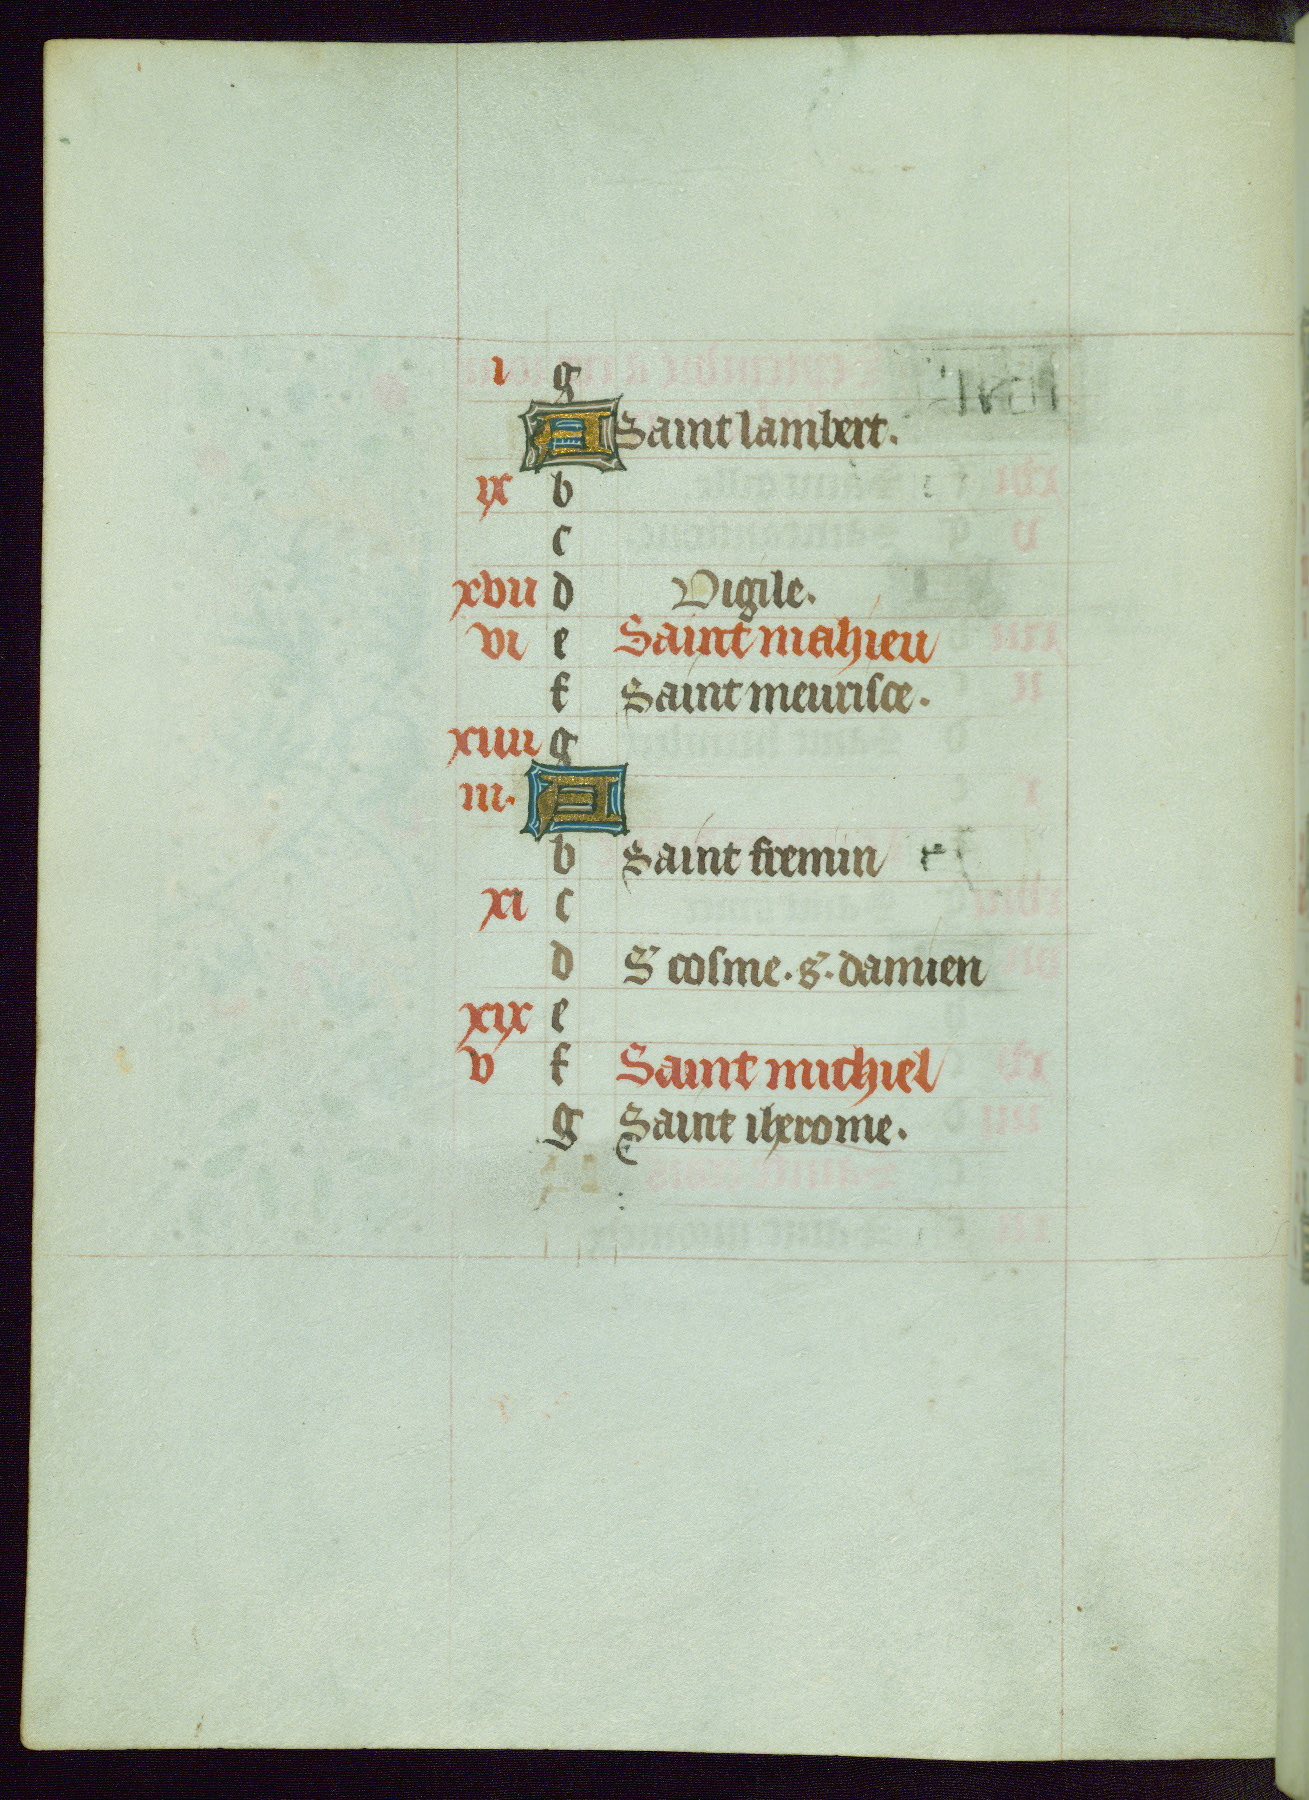 i g
A Saint lambert.
ix b
c
xvii d Vigile.
vi e Saint mahieu
f Saint meurisce.
xiiii g
iii. A
b Saint fremin
xi c
d S cosme. s. damien
xix e
v f Saint michiel
g Saint iherome.